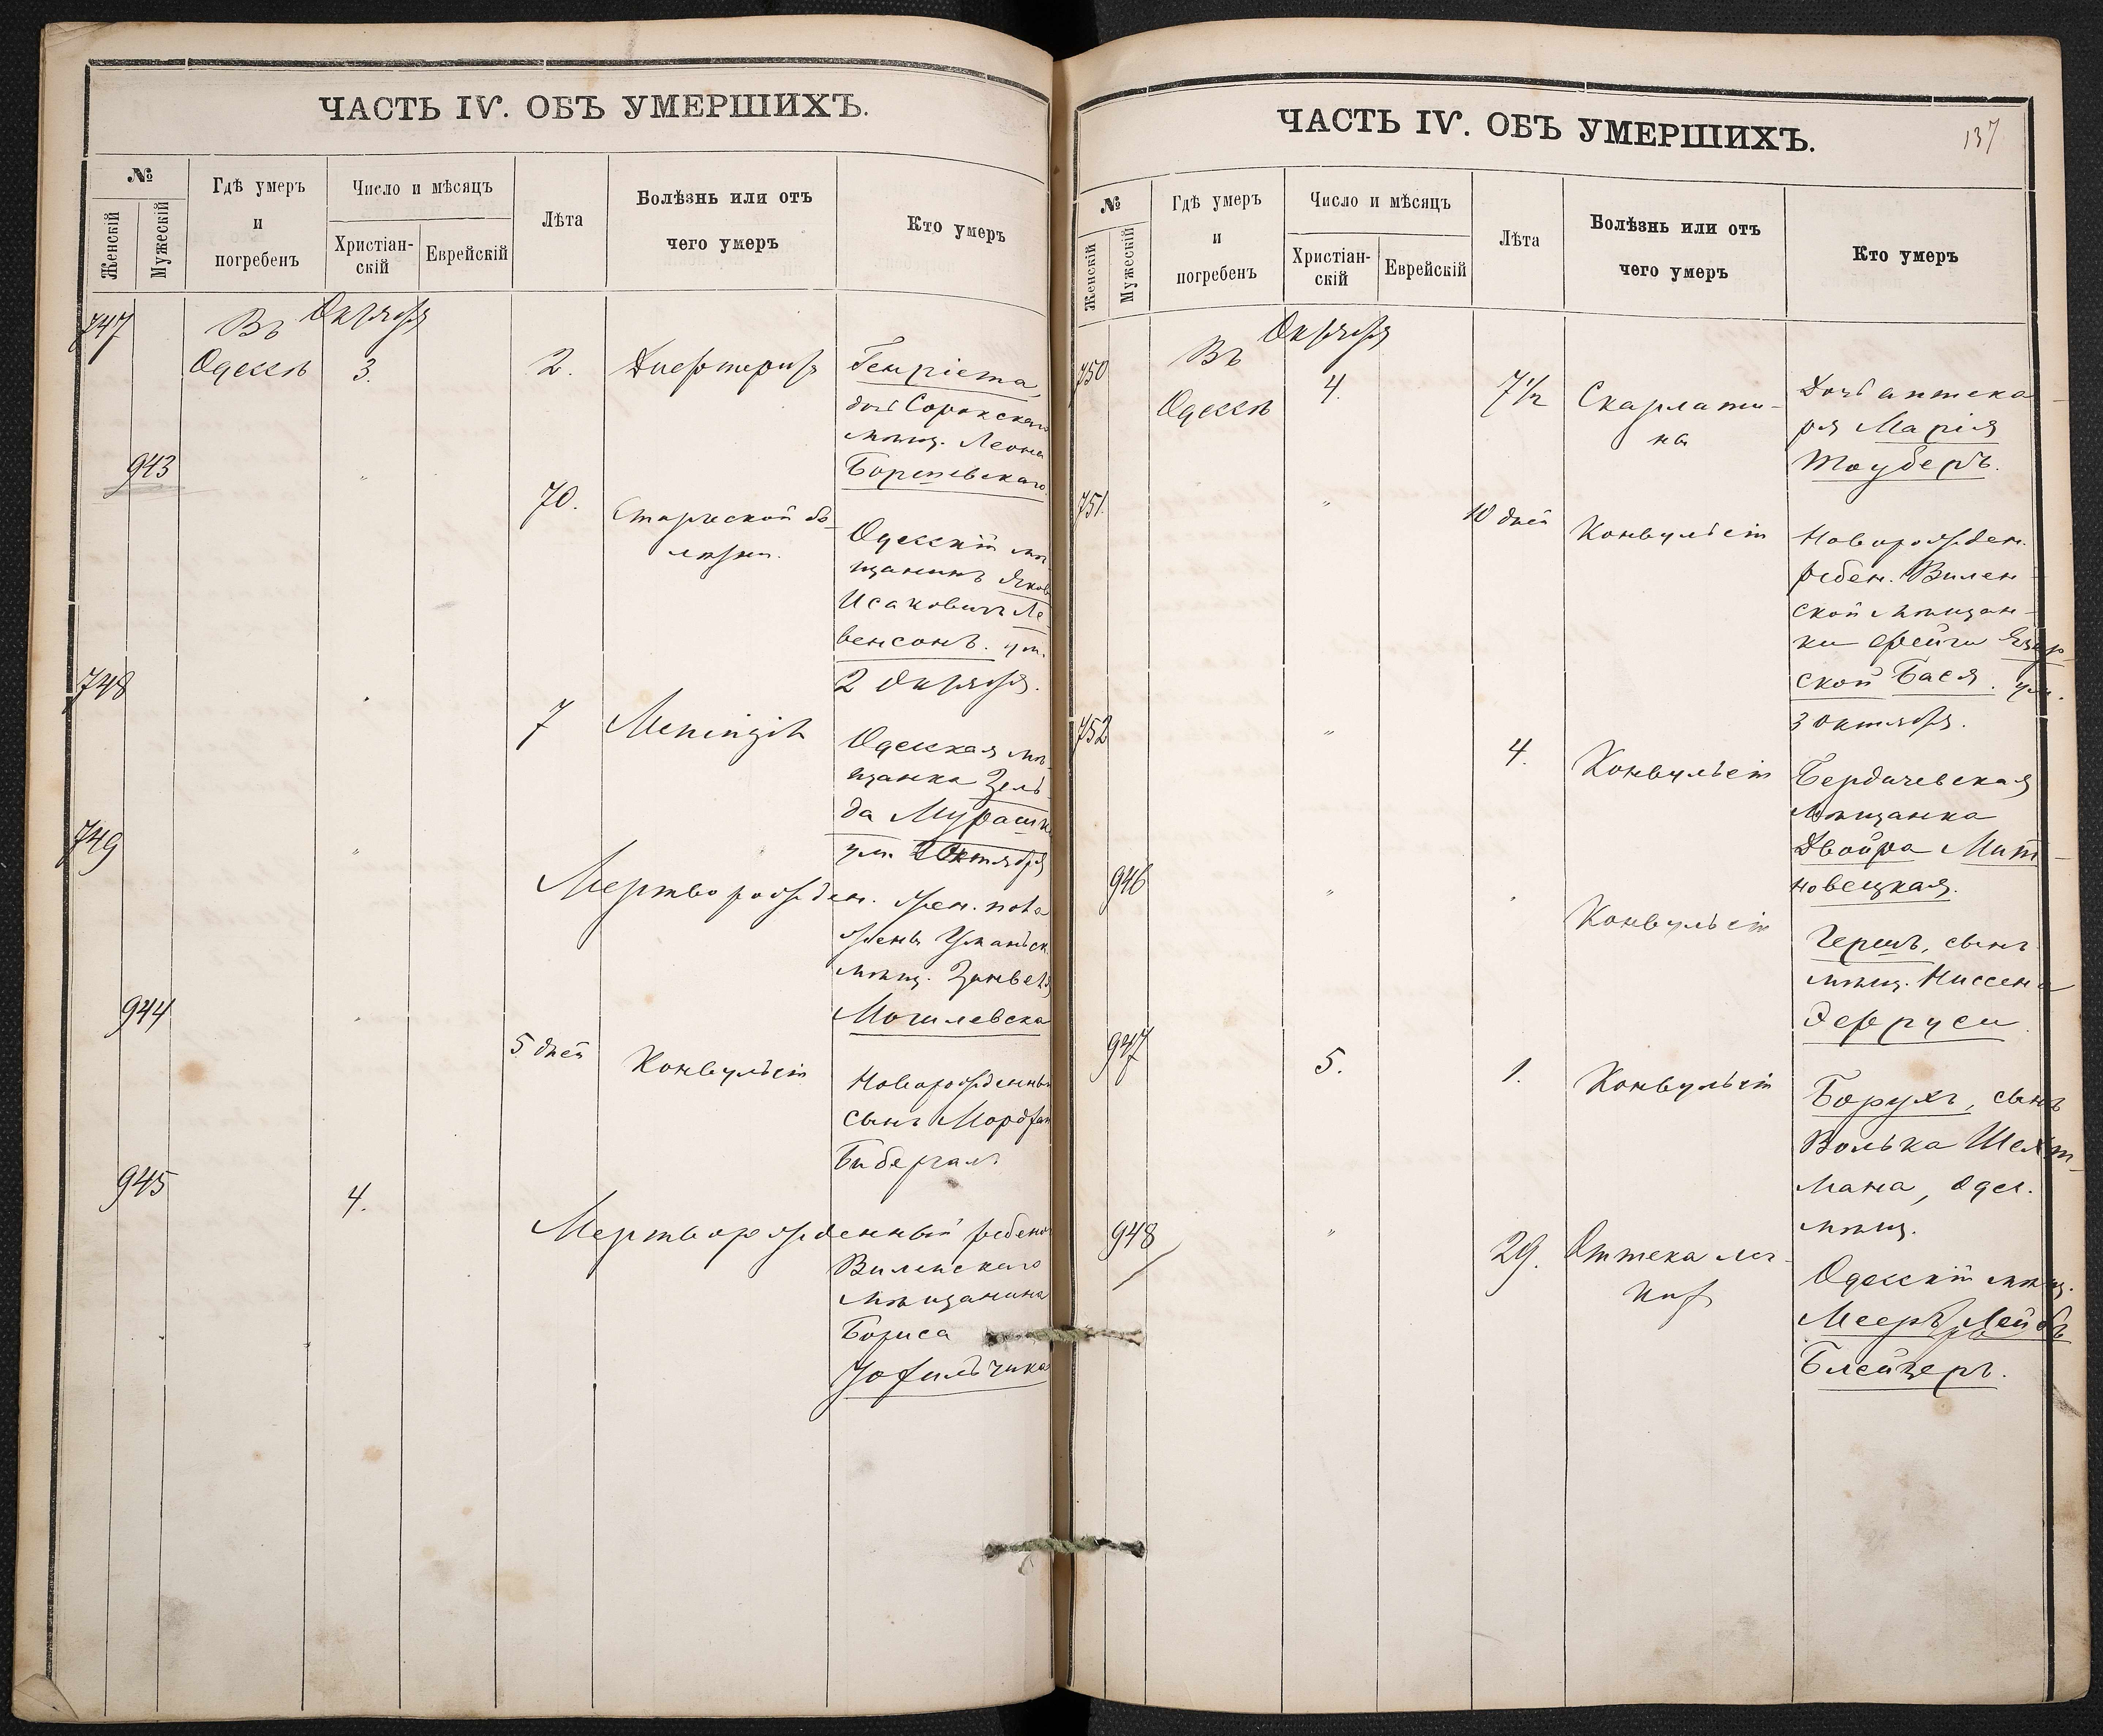 ЧАСТЬ IV. ОБЪ УМЕРШИХЪ.
№
Женскій
Мужескій
Гдѣ умеръ
и
погребенъ
Число и мѣсяцъ
Христіан-
скій
Еврейскій
Лѣта
Болѣзнь или отъ
чего умеръ
Кто умеръ
747
Въ
Одессѣ
Октября
3.
2.
Генріета,
дочь Сорокскаго
мѣщ. Леона
943
"
70.
Старческой бо-
лѣзни.
Одесскій мѣ-
щанинъ Яковъ
Исаковичъ Ле-
венсонъ. ум.
2 Октября.
748
"
7
Meningit
Одесская мѣ-
щанка Зель-
да
ум. 2 Октября
749
"
Мертворожден. жен. пола
Уманьск.
мѣщ.
Могилевска
944
"
5 дней
Конвульсіи
Новорожденный
сынъ
945
4.
Мертворожденный ребенок
Виленскаго
мѣщанина
Бориса
ЧАСТЬ IV. ОБЪ УМЕРШИХЪ.
137
№
Женскій
Мужескій
Гдѣ умеръ
и
погребенъ
Число и мѣсяцъ
Христіан-
скій
Еврейскій
Лѣта
Болѣзнь или отъ
чего умеръ
Кто умеръ
750
Въ
Одессѣ
Октября
4.
7½
Скарлати-
на
Дочь аптека-
ря Марія
Тауберъ.
751.
"
10 дней
Конвульсіи
Новорожден.
ребен. Вилен-
ской мѣщан-
ки Фейги
ской Бася. ум.
3 октября.
752
"
4.
Конвульсіи
Бердичевская
мѣщанка
Двойра Мит-
новецкая.
946
"
Конвульсіи
Гершъ, сынъ
мѣщ. Ниссена
Эфруси.
947
5.
1.
Конвульсіи
Борухъ, сынъ
Волька Шехт-
мана, Одес.
мѣщ.
948
"
29.
Отека
Одесскій мѣщ.
Мееръ Лейбъ
Блейзеръ.